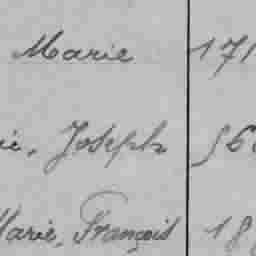 Marie 171
ie, Joseph 566
Marie, François 188